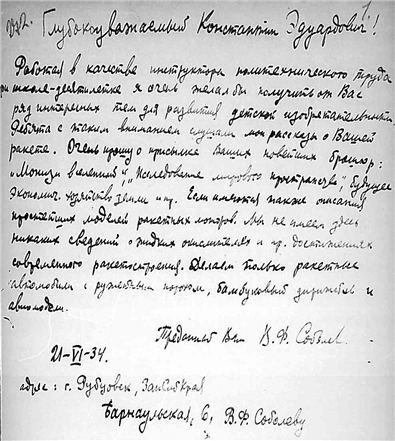 Глубокоуважаемый Константин Эдуардович!
Работая в качестве инструктора политехнического труда
при школе-десятилетке я очень желал бы получить от Вас
ряд интересных тем для развития детской изобретательности.
Ребята с таким вниманием слушали мои рассказы о Вашей
ракете. Очень прошу о присылке Ваших новейших брошюр:
"Монизм вселенной", "Исследование мирового пространства", будущее
земли и пр. Если имеются также описания
простейших моделей ракетных моторов. Мы не имеем здесь
никаких сведений о жидких окислителях и пр. достижениях
современного ракетостроения. Делаем только ракетные
автомобили с ружейным порохом, бамбуковый дирижабль и
Преданный Вам В.Ф. Соболев.
21-VI-34.
адрес: г. Рубцовск, ЗапСибкрая
Барнаульская, 6, В.Ф. Соболеву